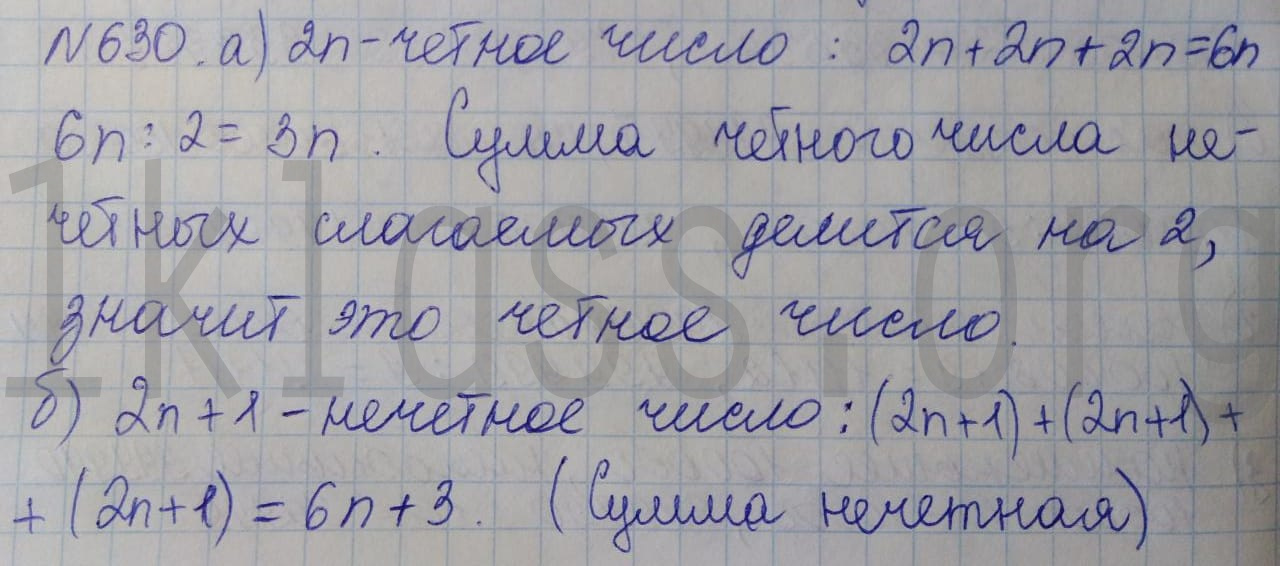 N630. а) 2n - четное число : 2n + 2n + 2n = 6n
6n : 2 = 3n. Сумма четного числа не-
четных слагаемых делится на 2,
значит это четное число.
б) 2n + 1 - нечетное число : (2n+1) + (2n+1) +
+ (2n+1) = 6n + 3. (Сумма нечетная)
1klass.org